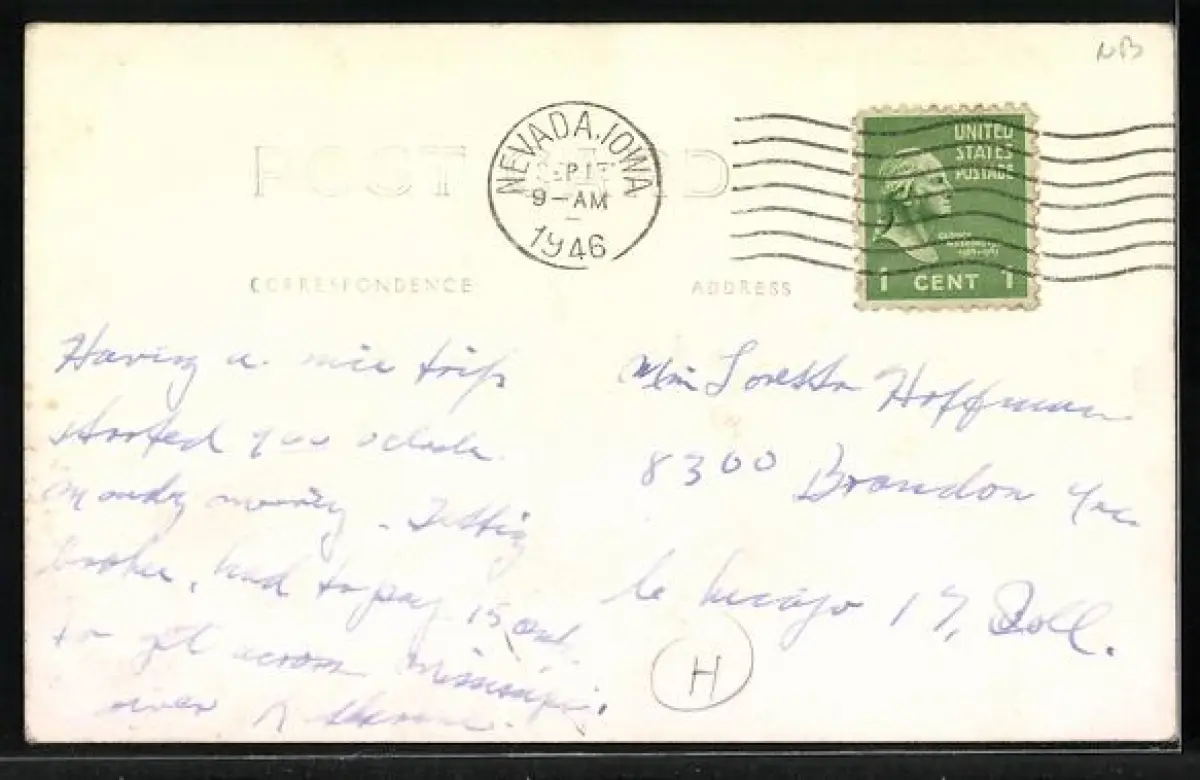 NB
POST CARD
NEVADA, IOWA
SEP 17
9-AM
1946
UNITED
STATES
POSTAGE
GEORGE
WASHINGTON
1 CENT 1
CORRESPONDENCE
ADDRESS
Having a nice trip
started 7 00 oclock
Monday morning. Getting
broke, had to pay 15 cent
to get across Mississippi
river
Miss Loretta Hoffman
8300 Brandon Ave
Chicago 17, Ill.
H